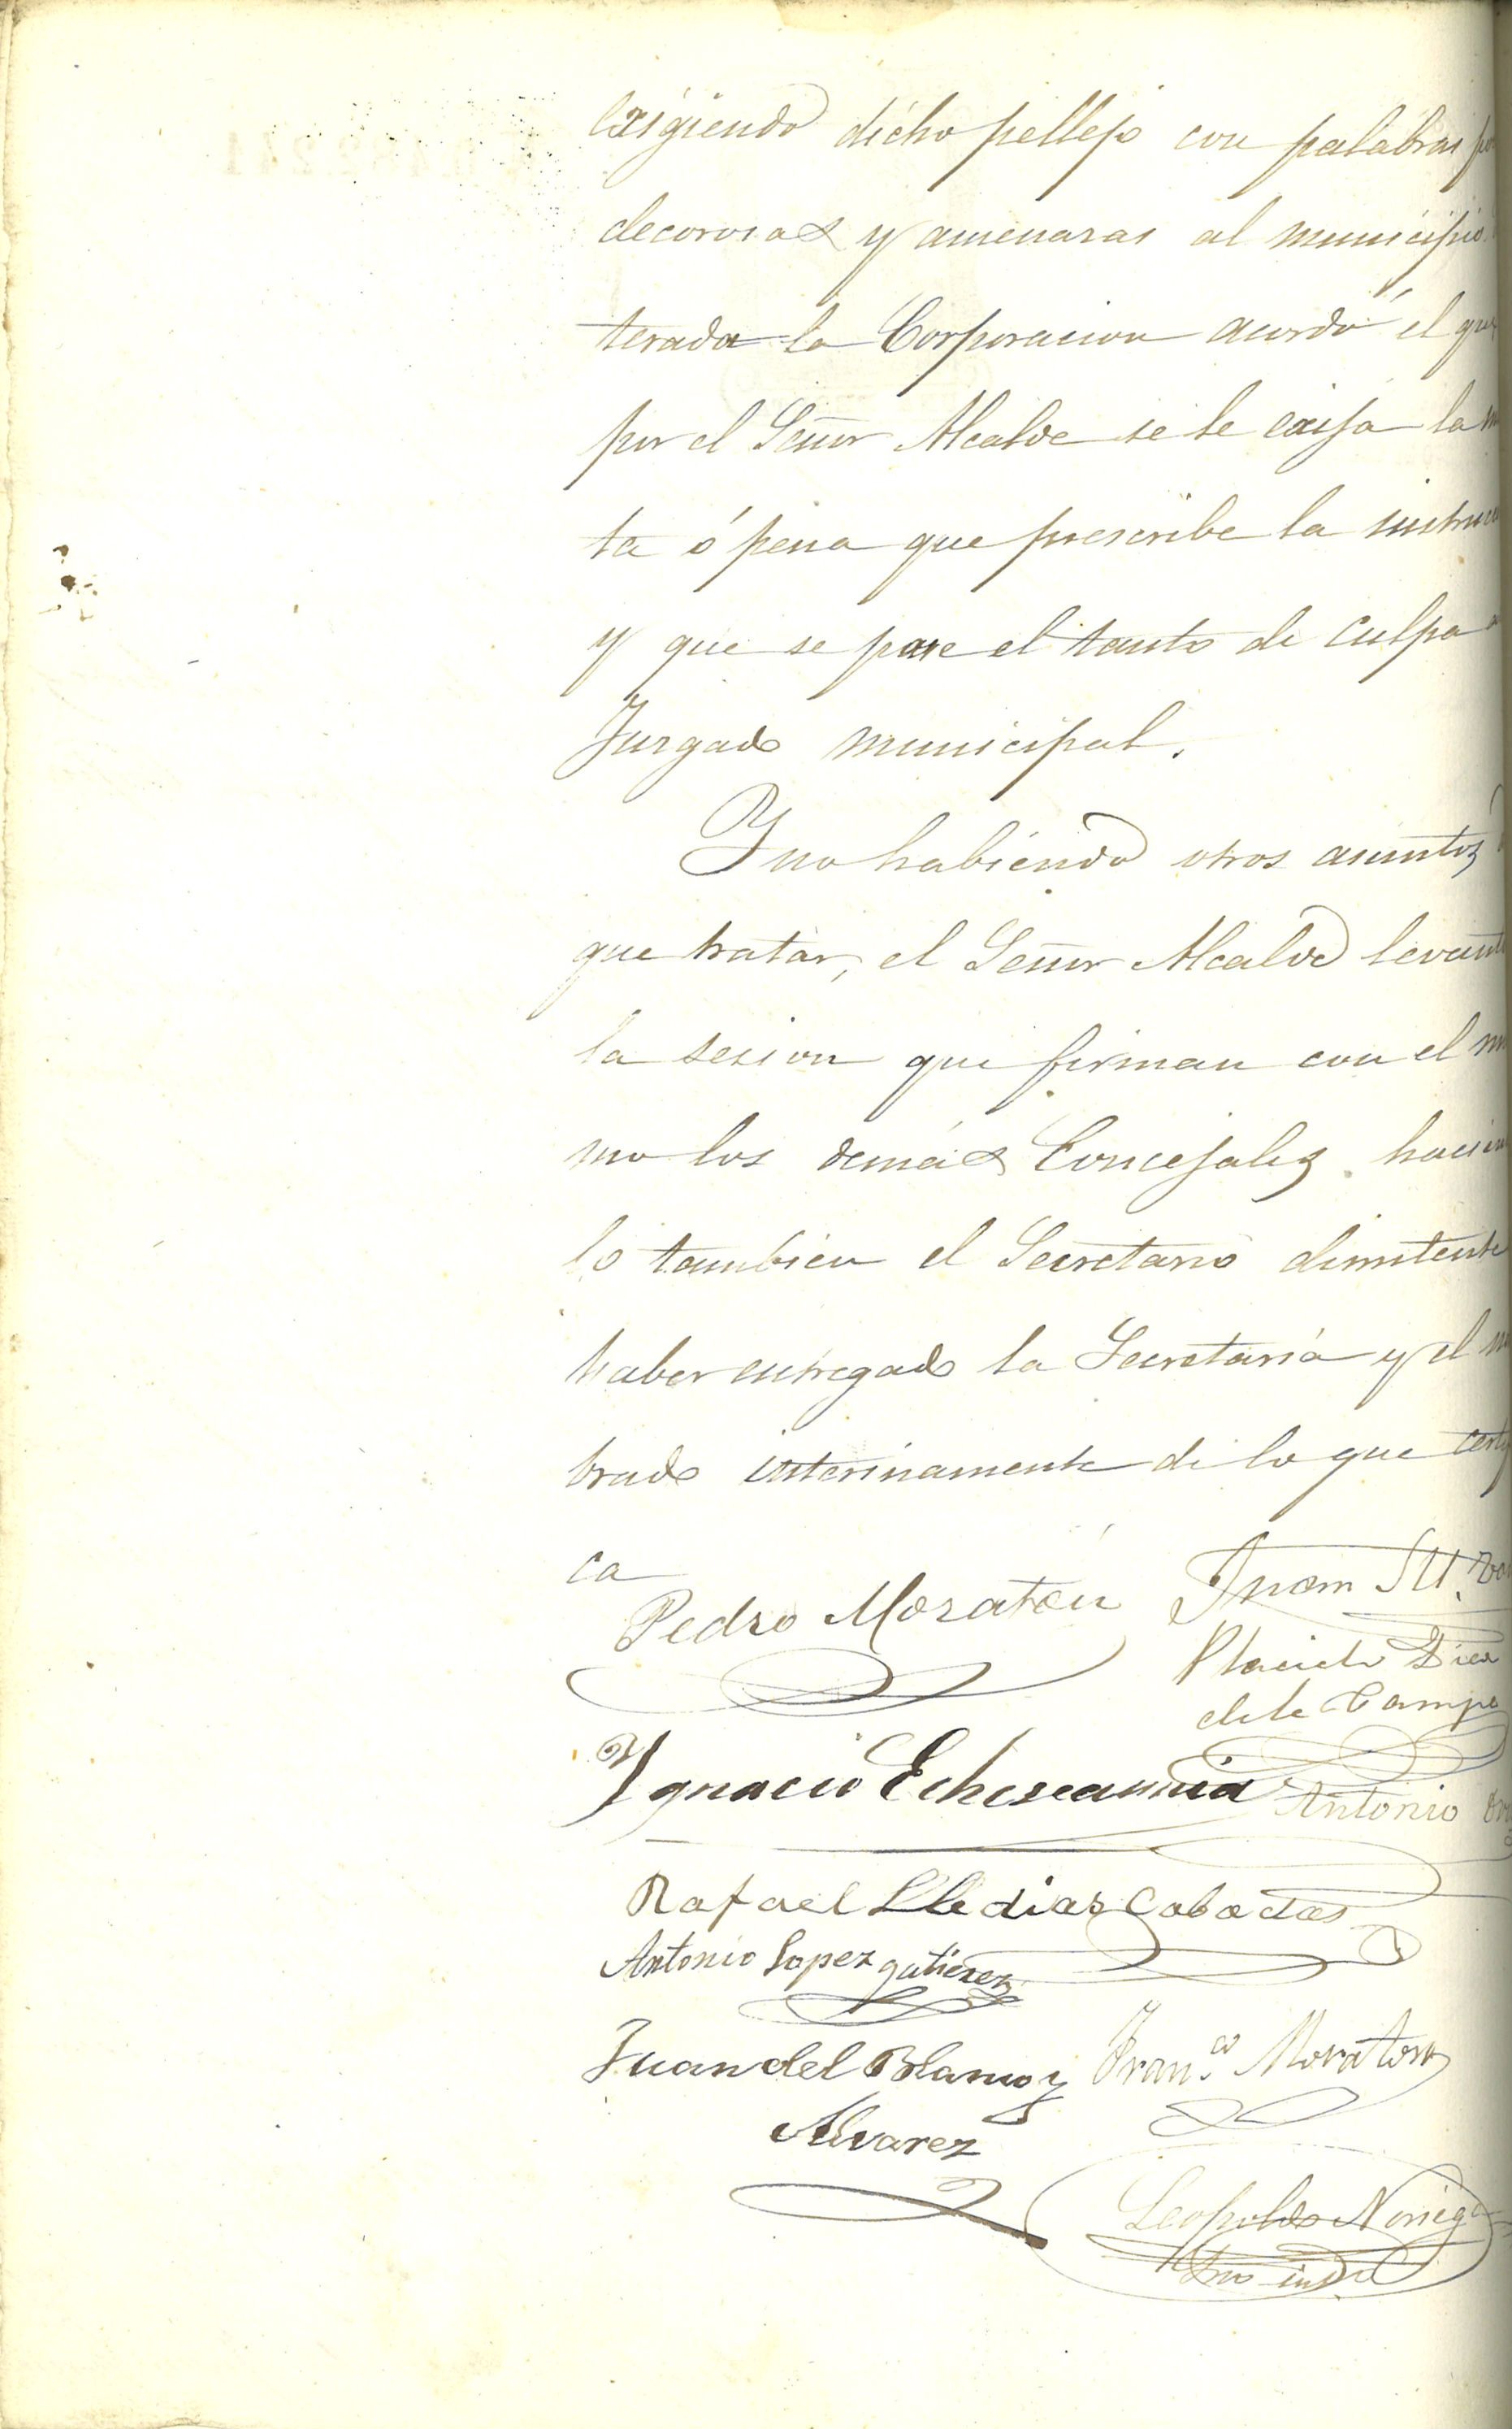 exigiendo dicho pellejo con palabras po
decorosas y amenazas al municipio.
terada la Corporacion acordó el que
por el Señor Alcalde se le exija la m
ta ó pena que prescribe la instruc
y que se pase el tanto de culpa a
Juzgado municipal.
Y no habiendo otros asuntos d
que tratar, el Señor Alcalde levant
la sesion que firman con el mi
mo los demás Concejales hacien
lo tambien el Secretario dimitente
haber entregado la Secretaría y el n
brado interinamente de lo que certifi
ca
Pedro Moraton Juan M.
Placido Diez
de la Campa
Ygnacio Echevarria Antonio
Rafael Lledias Cabadas
Antonio Lopez gutierez
Juan del Blanco y Fran.co Moraton
Alvarez
Leopoldo Noriega
Srio int.